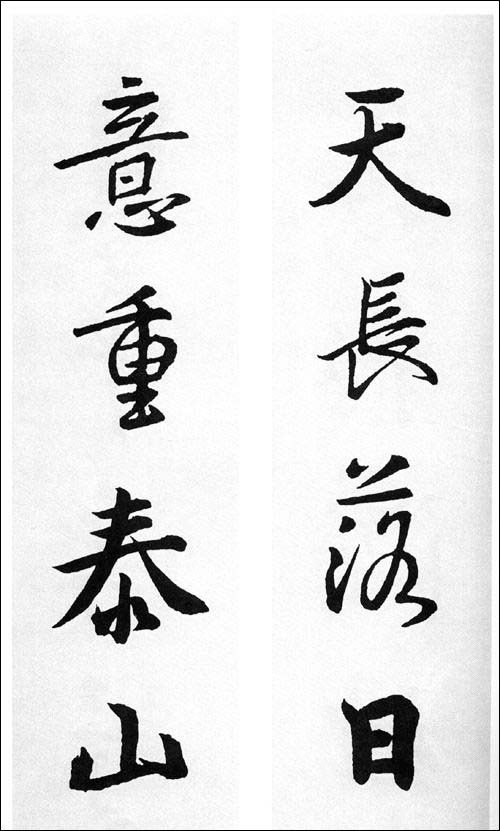 天長落日
意重泰山